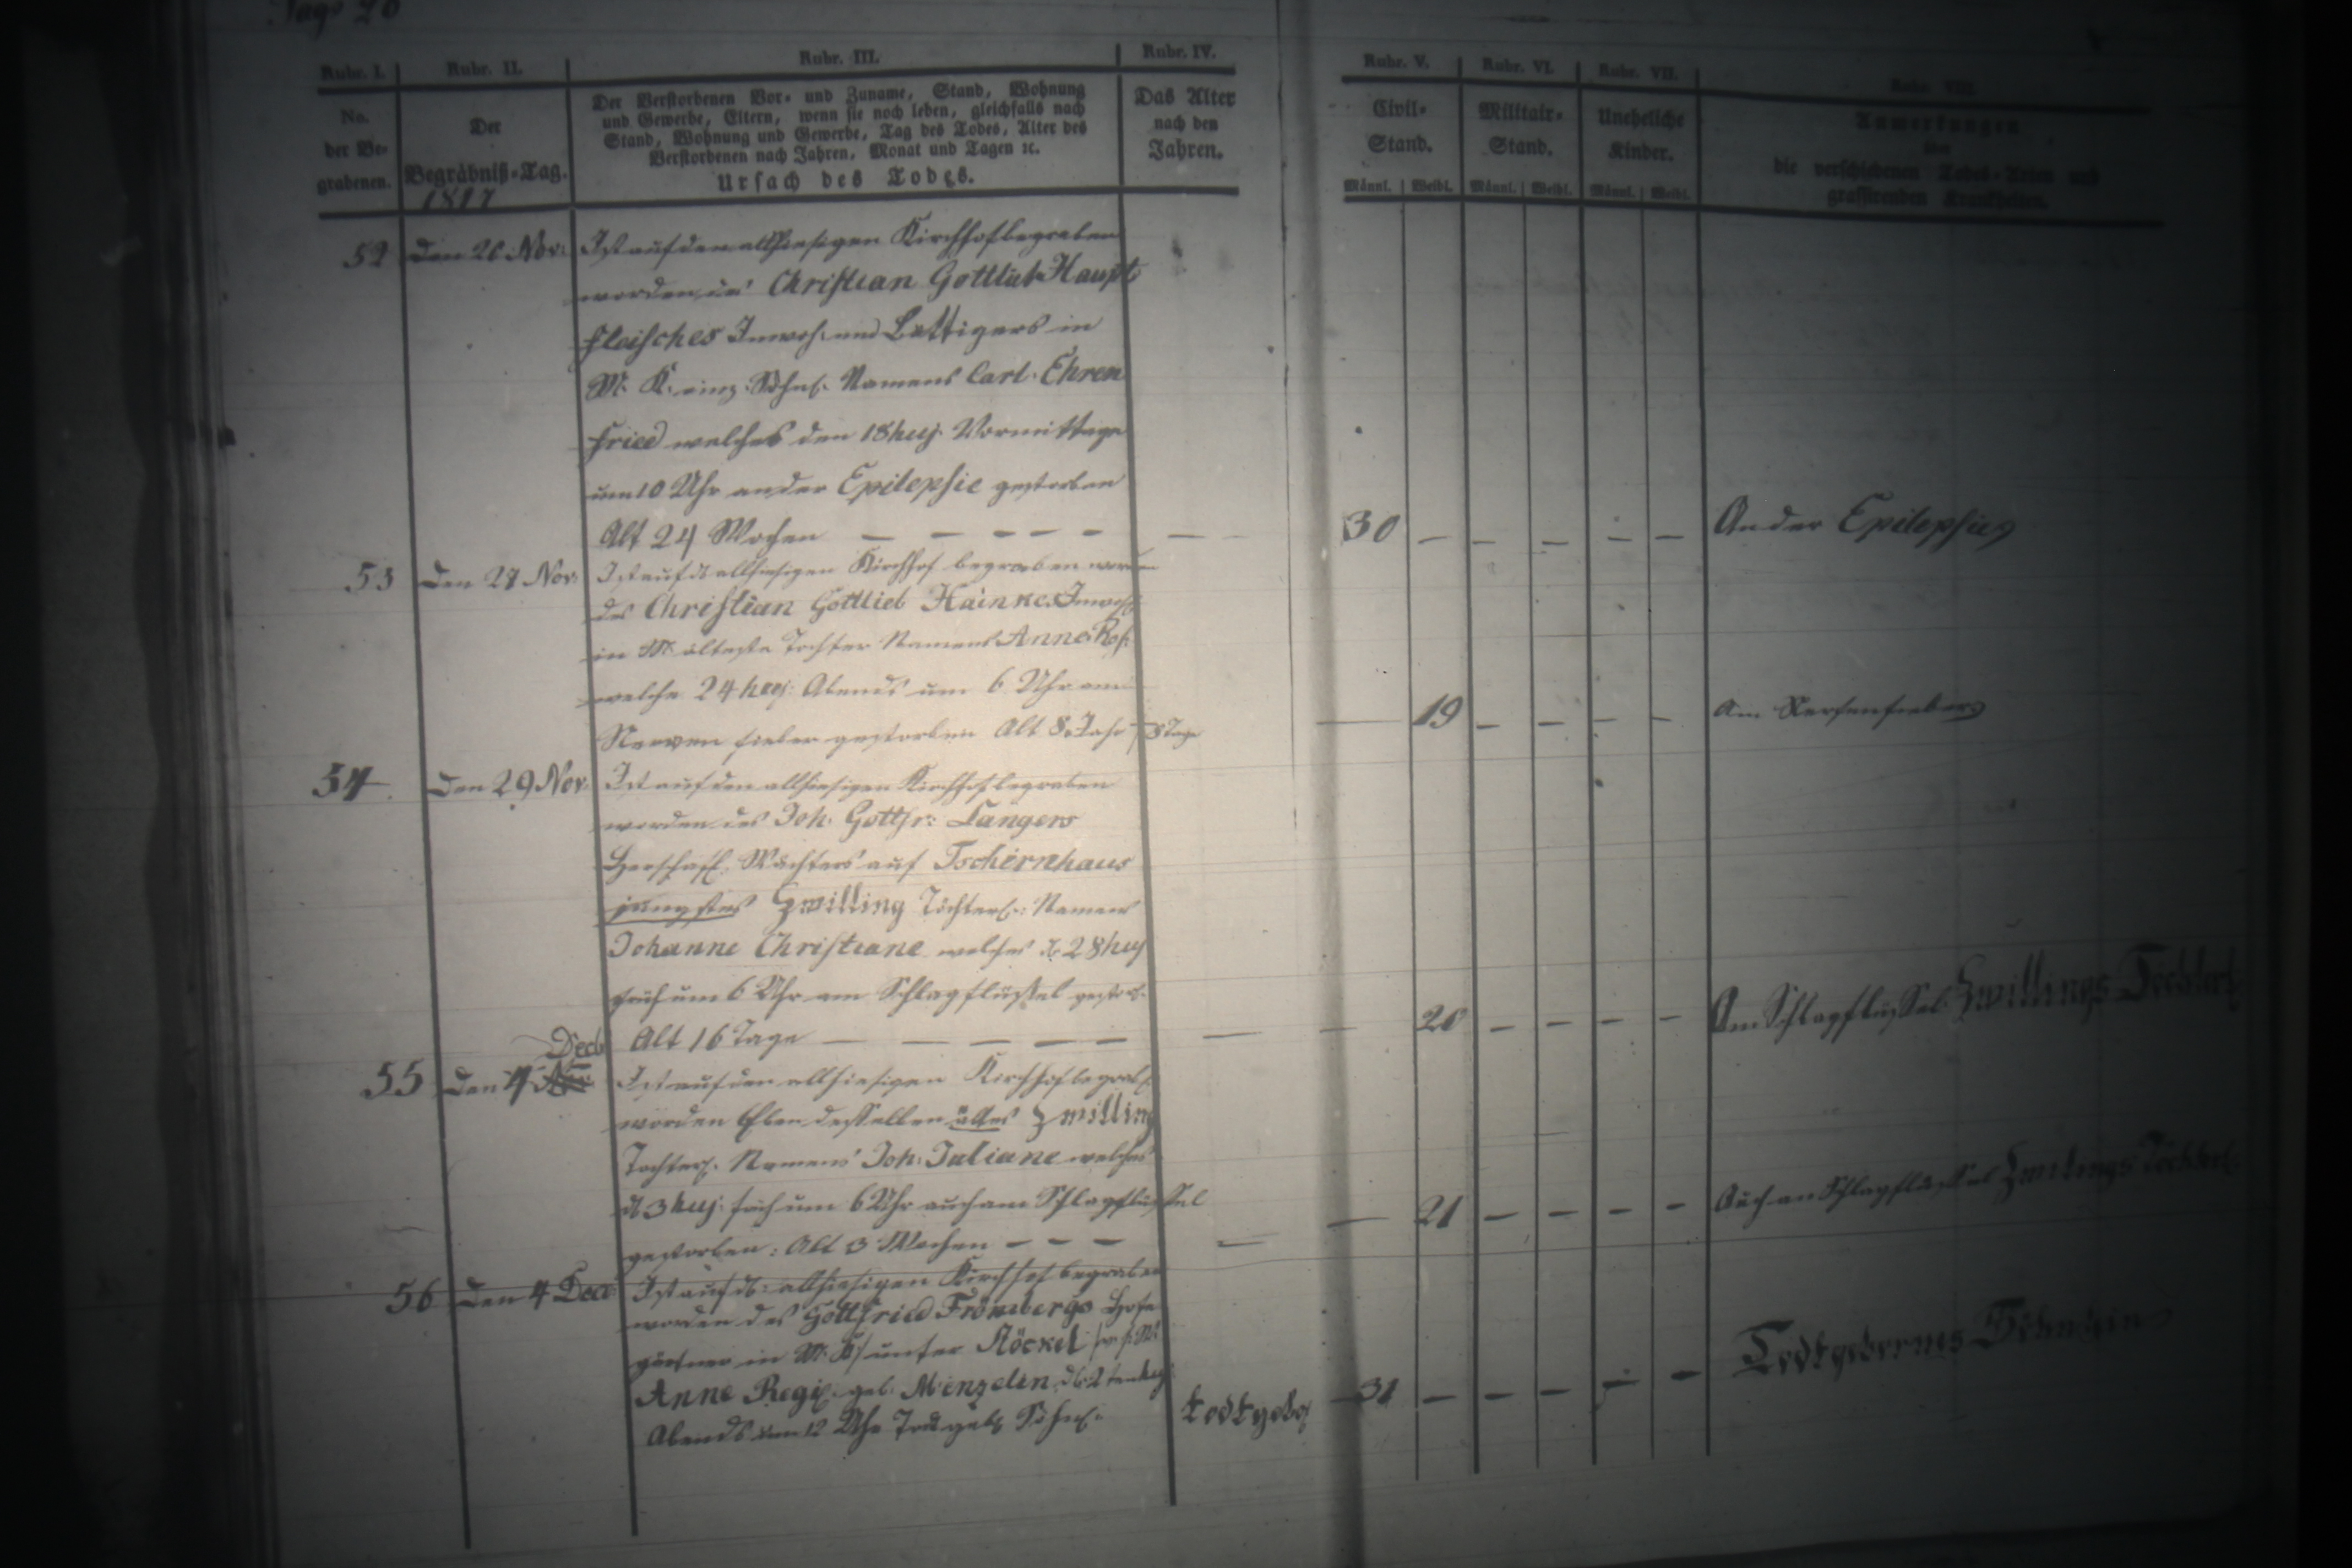 Pag. 20
Rubr. I. Rubr. II. Rubr. III. Rubr. IV. Rubr. V. Rubr. VI. Rubr. VII. Rubr. VIII.
No.
der Be-
grabenen.
Der
Begräbniß-Tag.
1817
Der Verstorbenen Vor- und Zuname, Stand, Wohnung
und Gewerbe, Eltern, wenn sie noch leben, gleichfalls nach
Stand, Wohnung und Gewerbe, Tag des Todes, Alter des
Verstorbenen nach Jahren, Monat und Tagen ꝛc.
Ursach des Todes.
Das Alter
nach den
Jahren.
Civil-
Stand.
Männl. Weibl.
Militair-
Stand.
Männl. Weibl.
Uneheliche
Kinder.
Männl. Weibl.
Anmerkungen
über
die verschiedenen Todes-Arten und
grassirenden Krankheiten.
52 Den 20 Nov: Ist auf den allhiesigen Kirchhof begraben
worden des Christian Gottlieb Haupt
fleisches Inwoh. und Böttigers in
M. K. einz. Söhnl. Namens Carl Ehren
fried welches den 18 huj. Vormittage
um 10 Uhr an der Epilepsie gestorben
Alt 24 Wochen — — — — — 30 — — — — — An der Epilepsie
53 Den 27 Nov: Ist auf d. allhiesigen Kirchhof begraben worden
des Christian Gottlieb Hainke Inwoh.
in M. älteste Tochter Namens Anne Ros.
welche 24 huj: Abends um 6 Uhr am
Nerven fieber gestorben Alt 8 Jahr 8 Tage — 19 — — — — Am Nervenfieber
54 Den 29 Nov: Ist auf den allhiesigen Kirchhof begraben
worden des Joh. Gottfr: Langers
Herschaftl. Wächters auf Tschirnhaus
jüngstes Zwilling Töchterl.: Namens
Johanne Christiane welches d. 28 huj
früh um 6 Uhr am Schlagflüssel gestorb.
Alt 16 Tage — — — — — — — 20 — — — — Am Schlagflüssel Zwillings Töchterl.
55 Den 4 Decb Ist auf den allhiesigen Kirchhof begrab.
worden Eben desselben ältes Zwilling
Tochterl. Namens Joh: Juliane welches
d. 3 huj: früh um 6 Uhr auch am Schlagflüssel
gestorben: Alt 3 Wochen — — — — — 21 — — — — Auch an Schlagflüssel Zwillings Töchterl.
56 Den 4 Dec: Ist auf d: allhiesigen Kirchhof begraben
worden des Gottfried Frömbergs Hofe
gärtner in M. K. unter Röckel
Anne Regi. geb. Menzelin, d. 2 ten huj
Abends um 12 Uhr Todtgeb. Söhnl. todtgebo. 31 — — — — — Todtgebornes Söhnlein